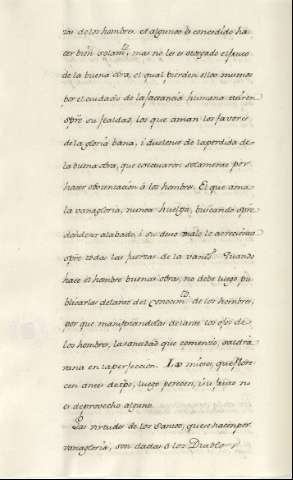 ras de los hombres. et algunos es concedido ha-
cer bien solamte, mas no les es otorgado el fruto
de la buena obra, el qual pierden ellos mismos
por el cuidado de la jactancia humana
sobre su fealdad, los que aman los favores
de la gloria bana, i duelense de la perdida de
la buena obra, que comenzaron solamente por
hacer obstentacion á los hombres. El que ama
la vanagloria, nunca huelga, buscando spre
donde ser alabado, i su deseo malo le acrecienta
spre todas las fuerzas de la vand. Quando
hace el hombre buenas obras, no debe luego pu-
blicarlas delante del conocimto de los hombres,
por que manifestandolas delante los ojos de
los hombres, la sanctidad que comenzó, no la terá
nina en la perfeccion. Las mieses, que flore-
cen antes de tpo, luego perecen, i su fruto no
es de provecho alguno.
Las virtudes de los Santos, que se hacen por
vanagloria, son dadas á los Diablos, i